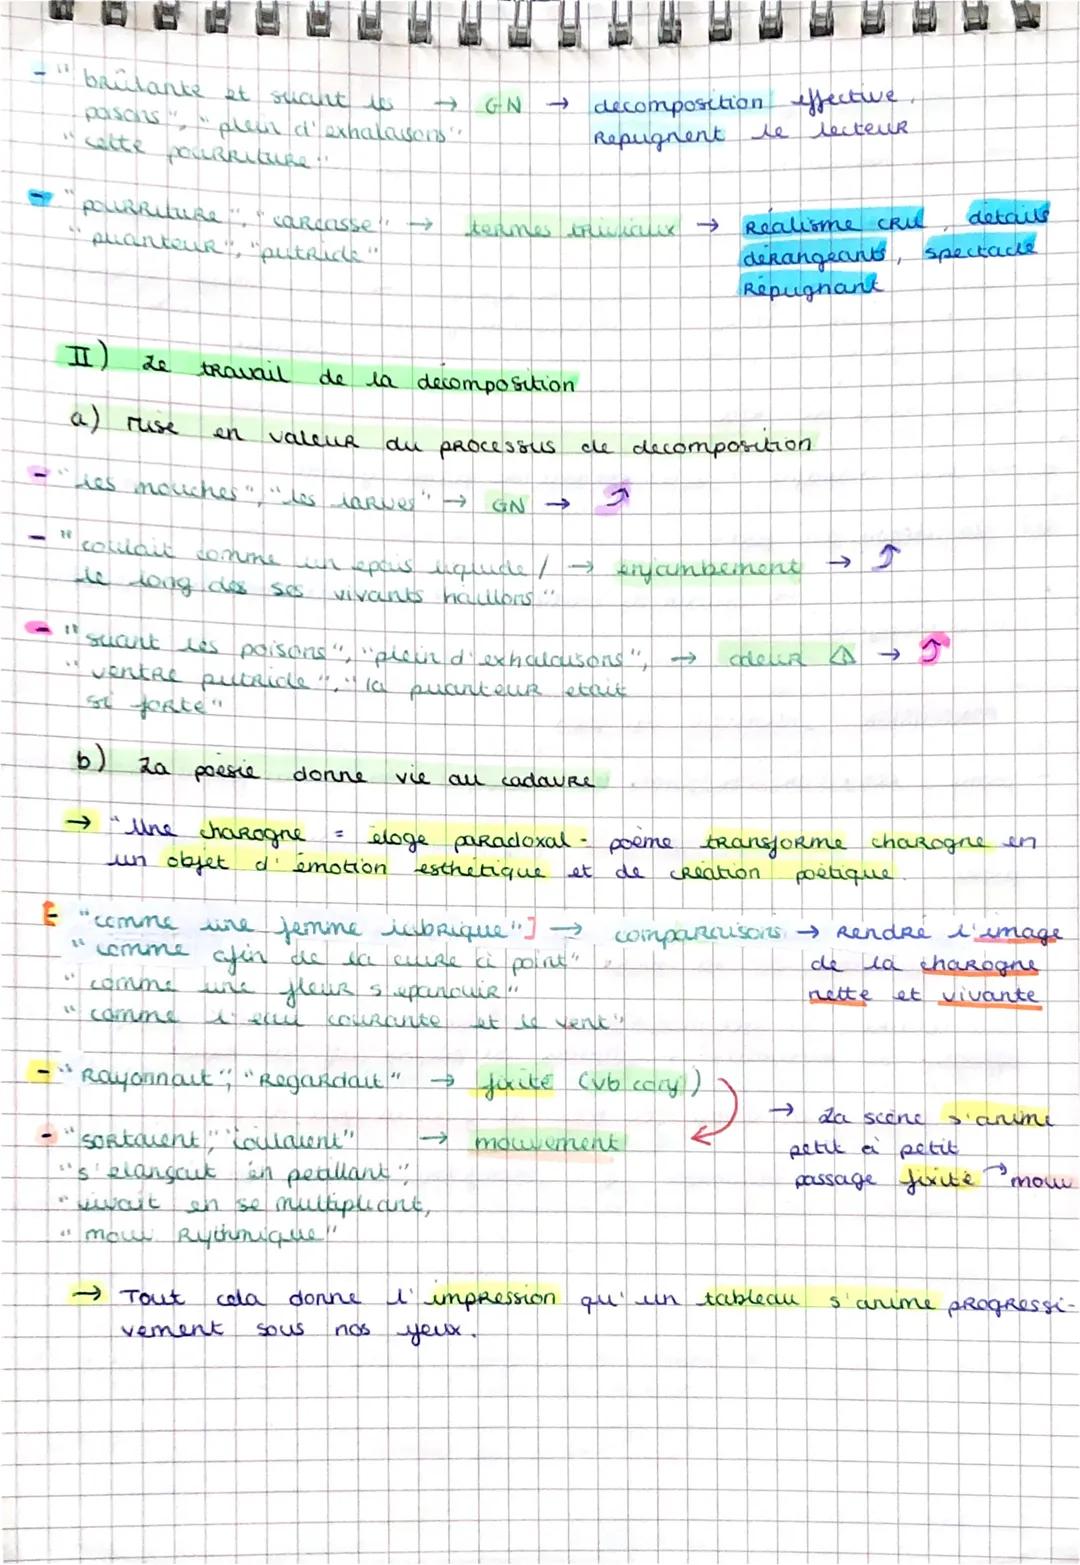 - "brûlante et suant les → GN → decomposition effective,
poisons", "plein d'exhalaisons" Repugnent le lecteur
"cette pourriture"
- "pourriture", "carcasse" → termes triviaux → Realisme cru, détails
"puanteur", "putride" dérangeants, spectacle
Répugnant
II) Le travail de la decomposition
a) mise en valeur du processus de decomposition
- "les mouches", "les larves" → GN → ⤴
- "coulait comme un epais liquide / → enjambement → ⤴
le long des ses vivants haillons"
- "suant les poisons", "plein d'exhalaisons", → odeur → ⤴
"ventre putride", "la puanteur etait
si forte"
b) La poésie donne vie au cadavre
→ "Une charogne = éloge paradoxal - poème transforme charogne en
un objet d'émotion esthétique et de création poétique.
- "comme une femme lubrique"] → comparaisons → Rendre l'image
"comme afin de la cuire à point" de la charogne
"comme une fleur s'epanouir" nette et vivante
"comme l'eau courante et le vent"
- "Rayonnait", "Regardait" → fixité (vb )
→ La scène s'anime
- "sortaient", "coulaient" → mouvement
petit à petit
"s'elançait en petillant", passage fixité → mouv
"vivait en se multipliant,
"mouv Rythmique"
→ Tout cela donne l'impression qu'un tableau s'anime progressi-
vement sous nos yeux.